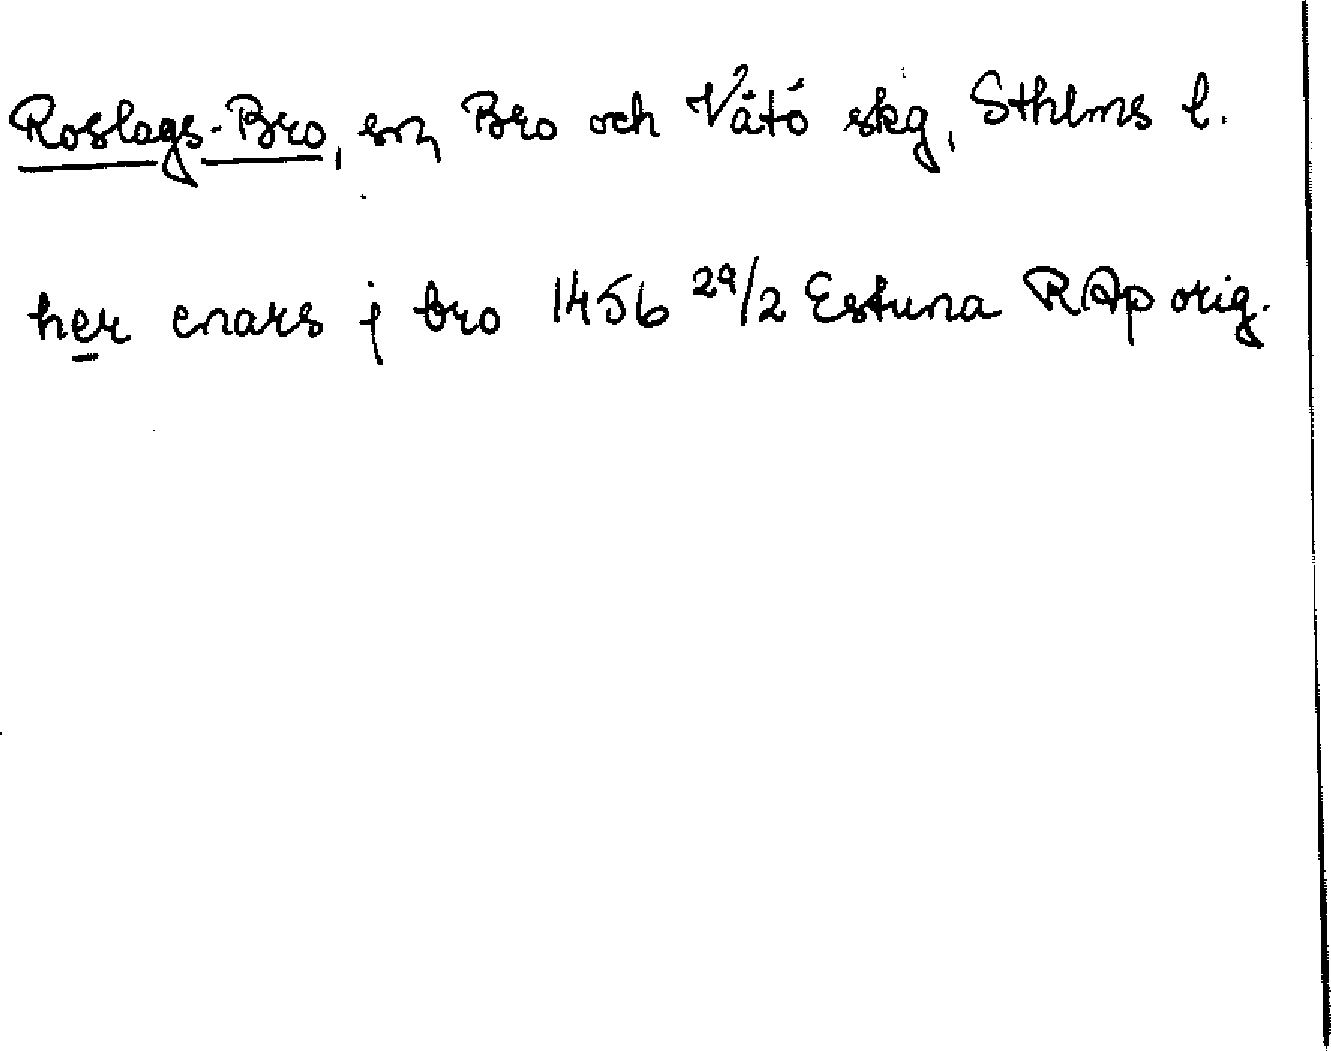 Roslags-Bro, sn, Bro och Vätö skg, Sthlms l.
her enars j bro 1456 29/2 Estuna RAp orig.